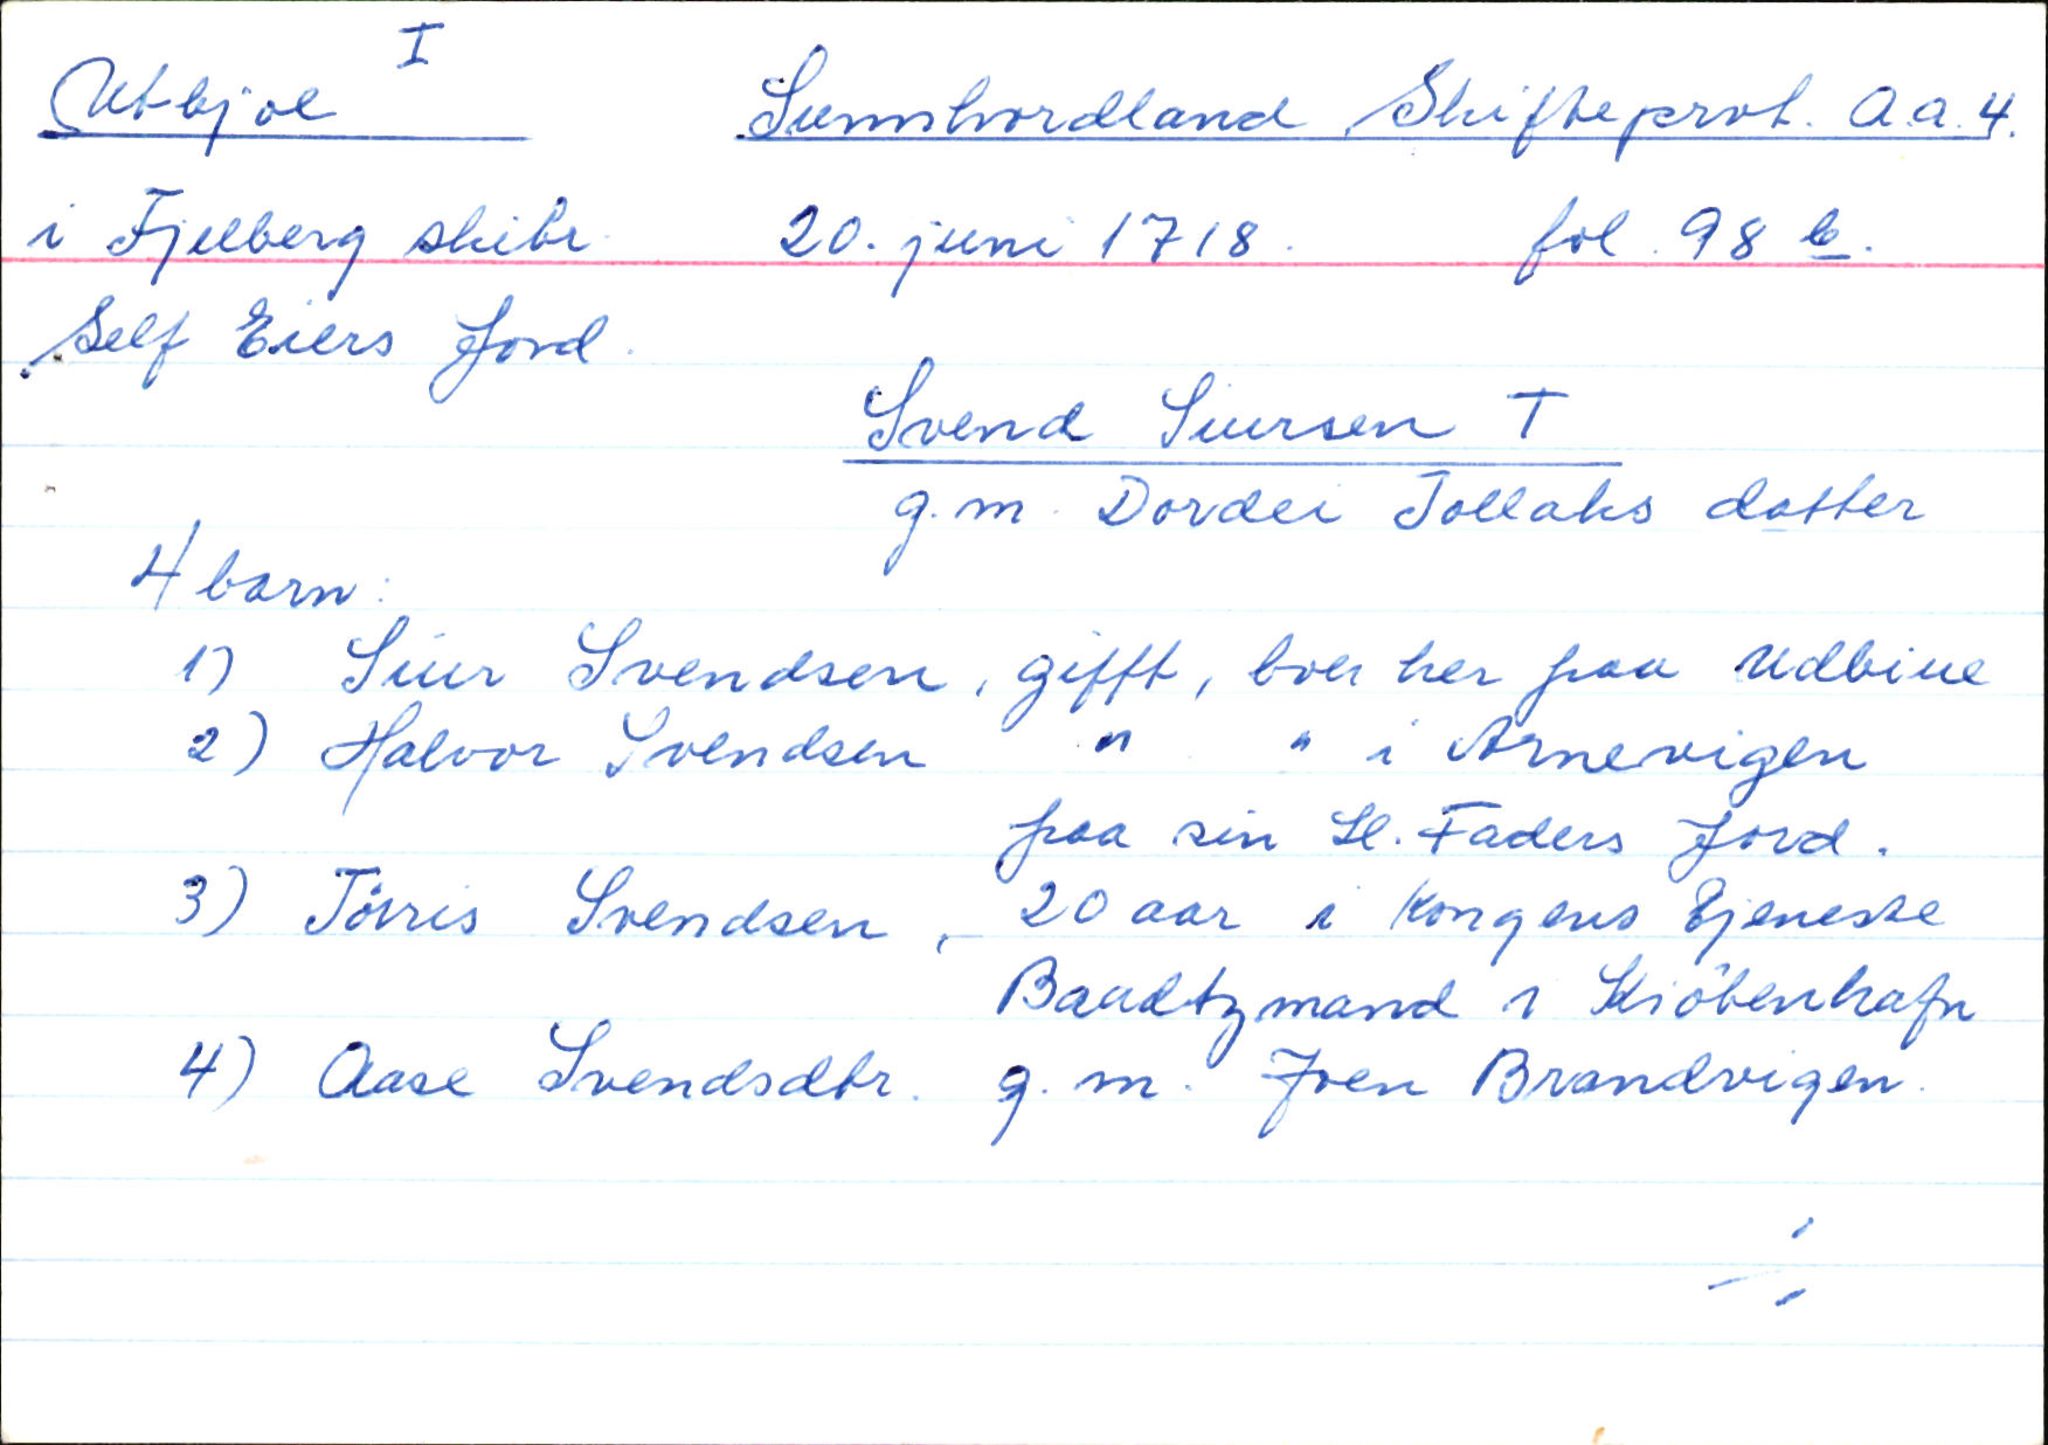 I
Utbjoe Sunnhordland Skifteprot. A.a. 4.
i Fjelberg skibr. 20. juni 1718. fol. 98 b.
Self Eiers Jord.
Svend Siursen †
g.m. Dordei Tollaks datter
4 barn:
1) Siur Svendsen, gifft, boer her paa Udbiue
2) Halvor Svendsen " " i Arnevigen
paa sin Sl. Faders Jord.
3) Törris Svendsen, - 20 aar i Kongens Tjeneste
Baadtzmand i Kiöbenhafn
4) Aase Svendsdtr. g.m. Joen Brandvigen.